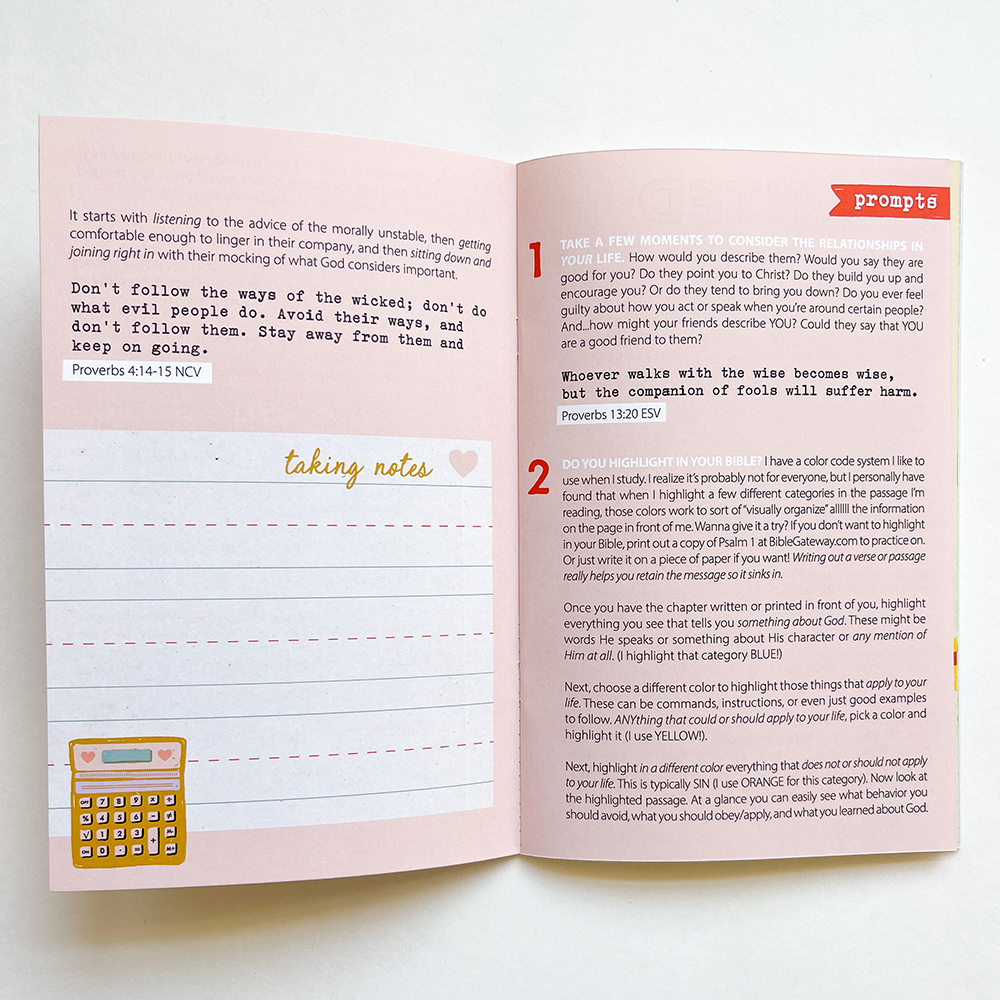 It starts with listening to the advice of the morally unstable, then getting
comfortable enough to linger in their company, and then sitting down and
joining right in with their mocking of what God considers important.
Don't follow the ways of the wicked; don't do
what evil people do. Avoid their ways, and
don't follow them. Stay away from them and
keep on going.
Proverbs 4:14-15 NCV
taking notes
OFF 7 8 9 × ÷
% 4 5 6 - ≠
√ 1 2 3 + M-
ON 0 · = M+
prompts
1
TAKE A FEW MOMENTS TO CONSIDER THE RELATIONSHIPS IN
YOUR LIFE. How would you describe them? Would you say they are
good for you? Do they point you to Christ? Do they build you up and
encourage you? Or do they tend to bring you down? Do you ever feel
guilty about how you act or speak when you're around certain people?
And...how might your friends describe YOU? Could they say that YOU
are a good friend to them?
Whoever walks with the wise becomes wise,
but the companion of fools will suffer harm.
Proverbs 13:20 ESV
2
DO YOU HIGHLIGHT IN YOUR BIBLE? I have a color code system I like to
use when I study. I realize it's probably not for everyone, but I personally have
found that when I highlight a few different categories in the passage I'm
reading, those colors work to sort of "visually organize" allllll the information
on the page in front of me. Wanna give it a try? If you don't want to highlight
in your Bible, print out a copy of Psalm 1 at BibleGateway.com to practice on.
Or just write it on a piece of paper if you want! Writing out a verse or passage
really helps you retain the message so it sinks in.
Once you have the chapter written or printed in front of you, highlight
everything you see that tells you something about God. These might be
words He speaks or something about His character or any mention of
Him at all. (I highlight that category BLUE!)
Next, choose a different color to highlight those things that apply to your
life. These can be commands, instructions, or even just good examples
to follow. ANYthing that could or should apply to your life, pick a color and
highlight it (I use YELLOW!).
Next, highlight in a different color everything that does not or should not apply
to your life. This is typically SIN (I use ORANGE for this category). Now look at
the highlighted passage. At a glance you can easily see what behavior you
should avoid, what you should obey/apply, and what you learned about God.